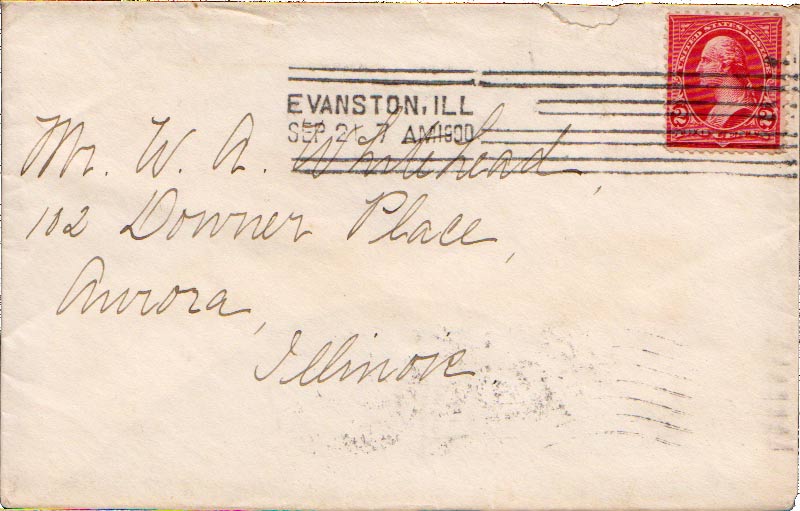 UNITED STATES POSTAGE
2 2
EVANSTON, ILL
SEP 21 7 AM 1900
Mr. W. A. Whitehead,
102 Downer Place,
Aurora,
Illinois.